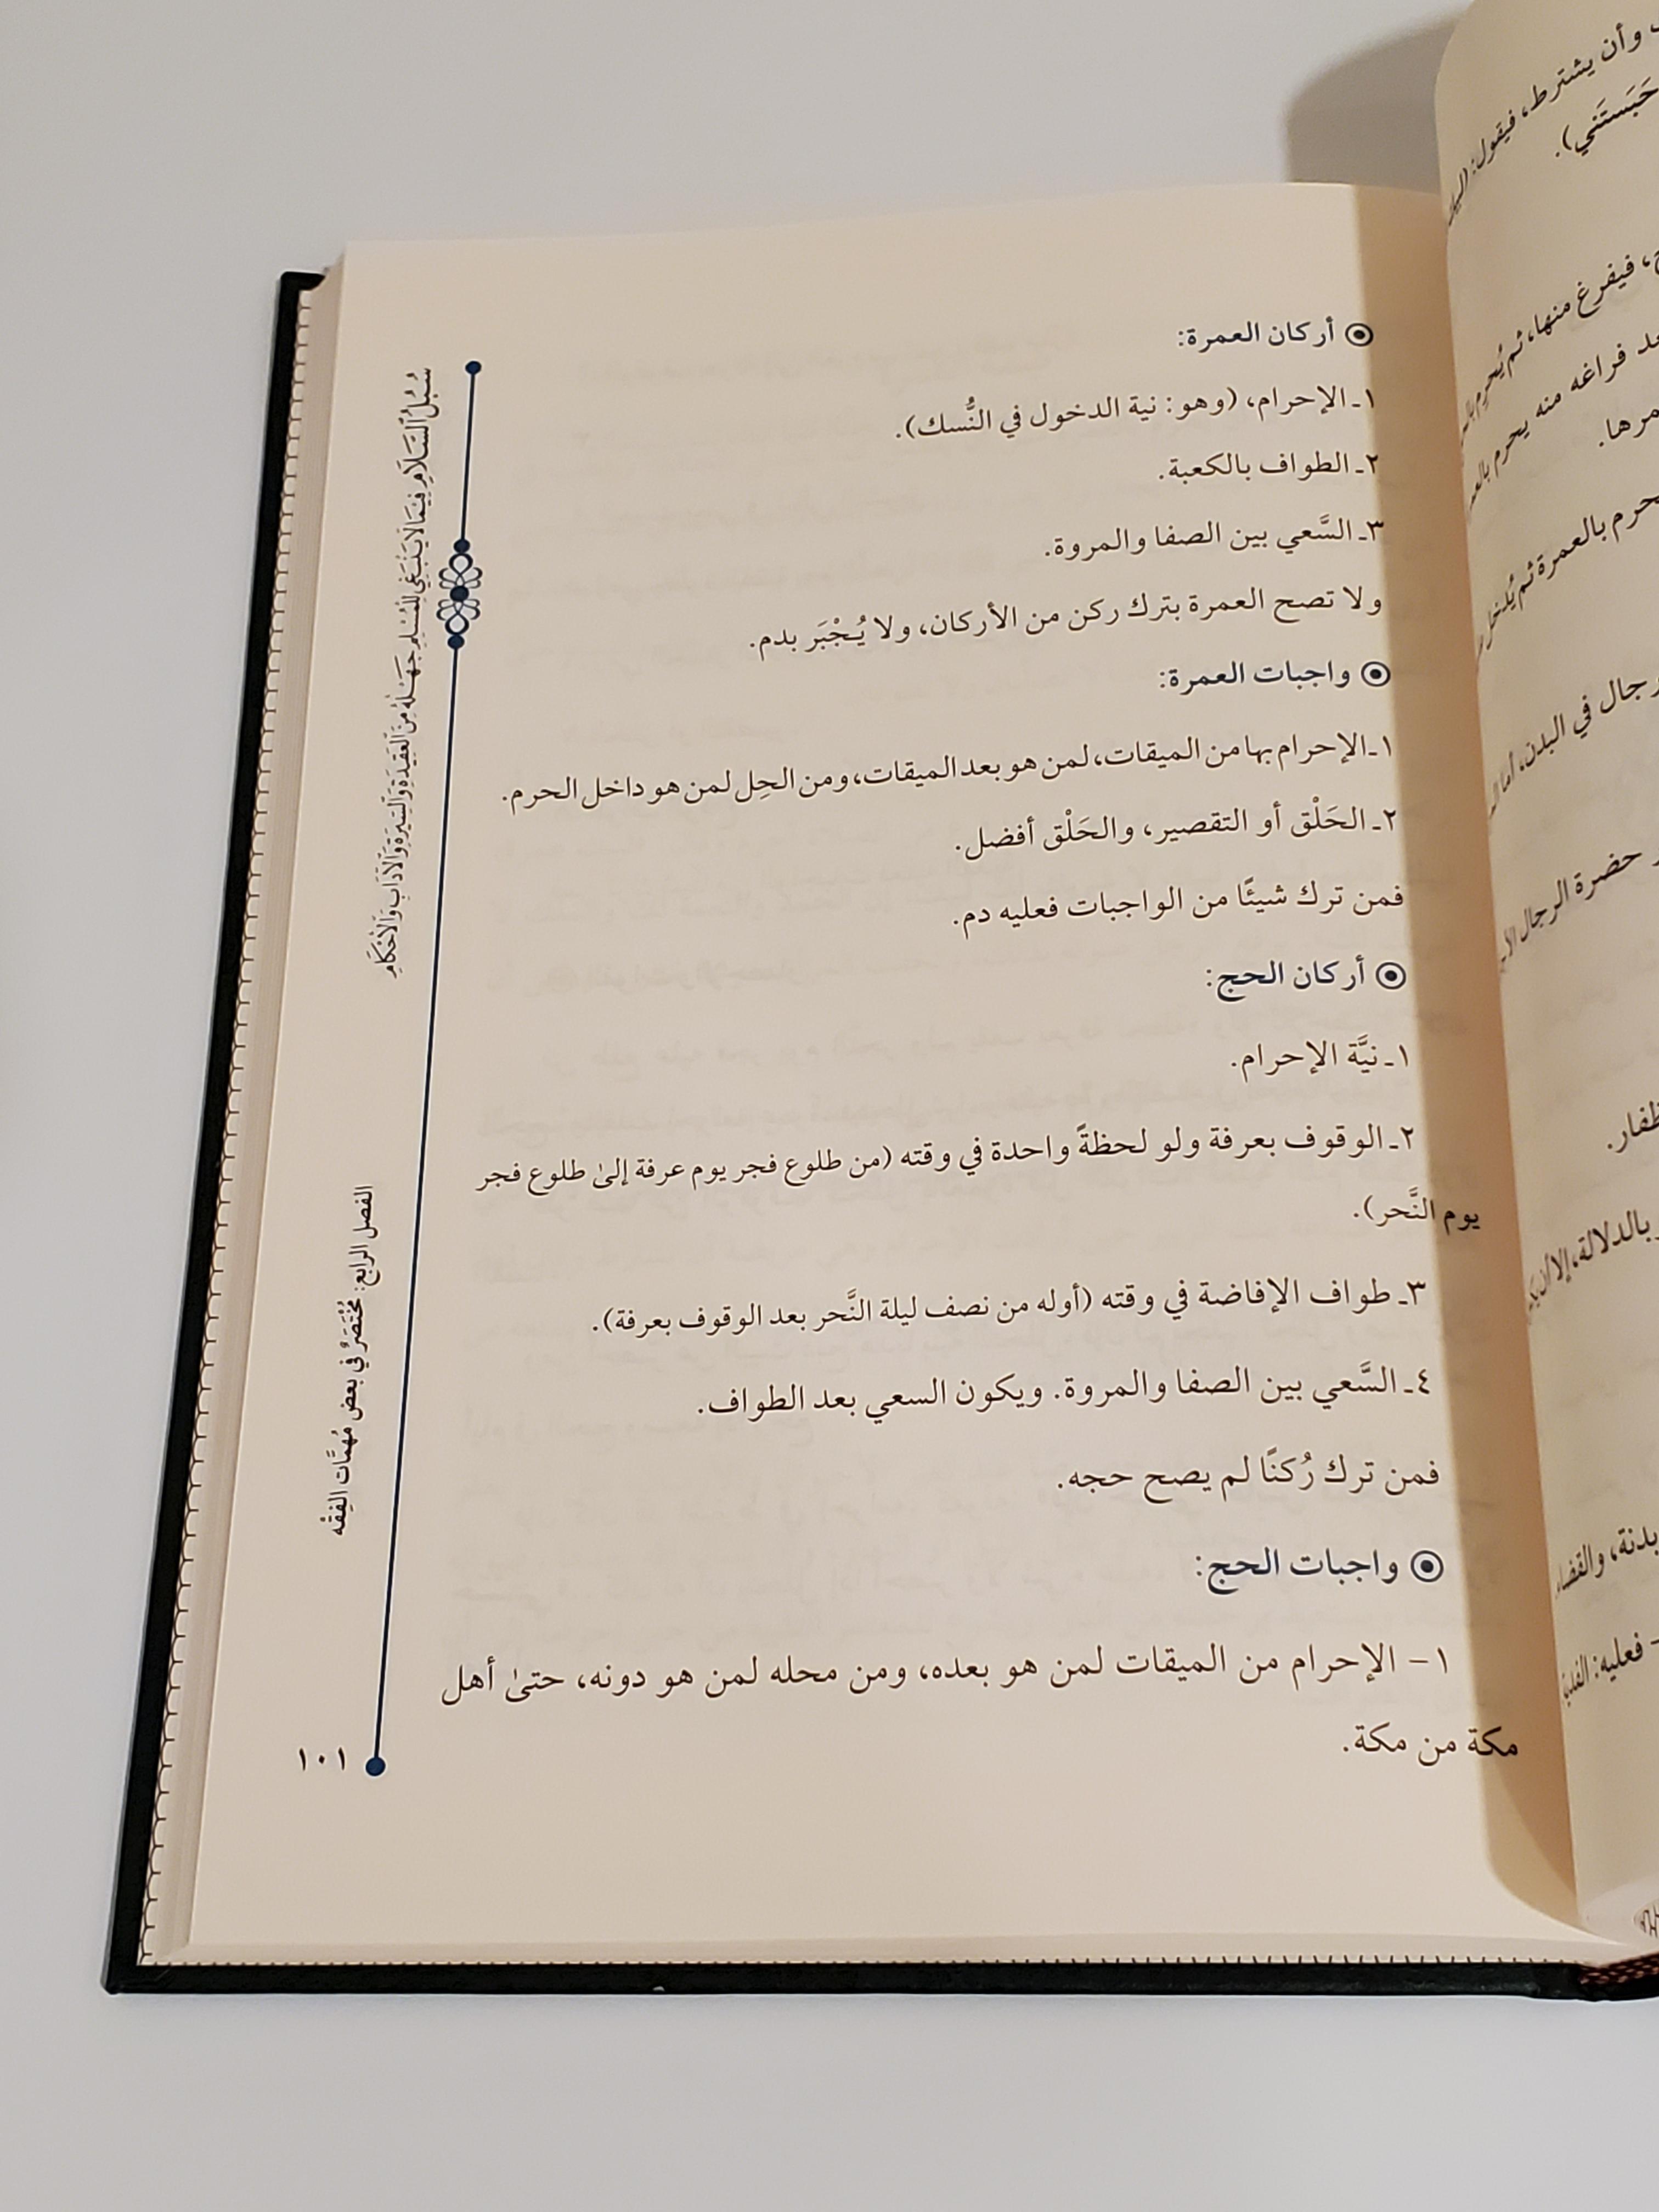 ◉ أركان العمرة:
١ـ الإحرام، (وهو: نية الدخول في النُّسك).
٢ـ الطواف بالكعبة.
٣ـ السَّعي بين الصفا والمروة.
ولا تصح العمرة بترك ركن من الأركان، ولا يُجْبَر بدم.
◉ واجبات العمرة:
١ـ الإحرام بها من الميقات، لمن هو بعد الميقات، ومن الحِل لمن هو داخل الحرم.
٢ـ الحَلْق أو التقصير، والحَلْق أفضل.
فمن ترك شيئًا من الواجبات فعليه دم.
◉ أركان الحج:
١ـ نيَّة الإحرام.
٢ـ الوقوف بعرفة ولو لحظةً واحدة في وقته (من طلوع فجر يوم عرفة إلىٰ طلوع فجر
يوم النَّحر).
٣ـ طواف الإفاضة في وقته (أوله من نصف ليلة النَّحر بعد الوقوف بعرفة).
٤ـ السَّعي بين الصفا والمروة. ويكون السعي بعد الطواف.
فمن ترك رُكنًا لم يصح حجه.
◉ واجبات الحج:
١– الإحرام من الميقات لمن هو بعده، ومن محله لمن هو دونه، حتىٰ أهل
مكة من مكة.
سُبُلُ السَّلَامِ فِيمَا لَا يَنْبَغِي لِلْمُسْلِمِ جَهْلُهُ مِنَ العَقِيدَةِ وَالسِّيرَةِ وَالْآدَابِ وَالْأَحْكَامِ
الفصل الرابع: مُخْتَصَرٌ في بعض مُهمَّات الفِقْه
١٠١
وأن يشترط، فيقول:
حَبَستَني).
فيفرغ منها، ثم يُحرِم
فراغه منه يحرم
يحرم بالعمرة ثم يُدخل
في البدن، أما
حضرة الرجال
بالدلالة، إلا أن
بدنة، والقضاء
– فعليه: